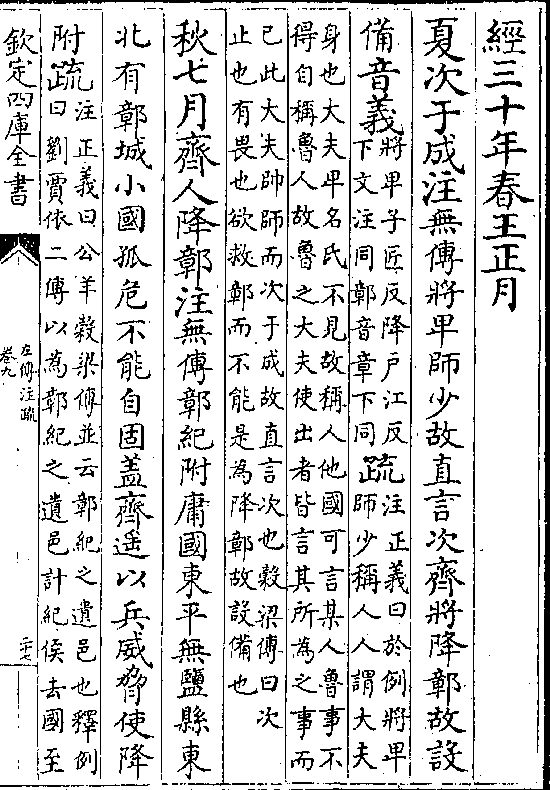 經三十年春王正月
夏次于成注無傳將卑師少故直言次齊將降鄣故設
備音義將卑子匠反降户江反
下文注同鄣音章下同疏注正義曰於例將卑
師少稱人人謂大夫
身也大夫卑名氏不見故稱人他國可言某人魯事不
得自稱魯人故魯之大夫使出者皆言其所為之事而
已此大夫帥師而次于成故直言次也榖梁傳曰次
止也有畏也欲救鄣而不能是為降鄣故設備也
秋七月齊人降鄣注無傳鄣紀附庸國東平無鹽縣東
北有鄣城小國孤危不能自固盖齊遥以兵威脅使降
附疏注正義曰公羊榖梁傳並云鄣紀之遺邑也釋例
曰劉賈依二傳以為鄣紀之遺邑計紀侯去國至
欽定四庫全書
左傳注疏
卷九
二十七